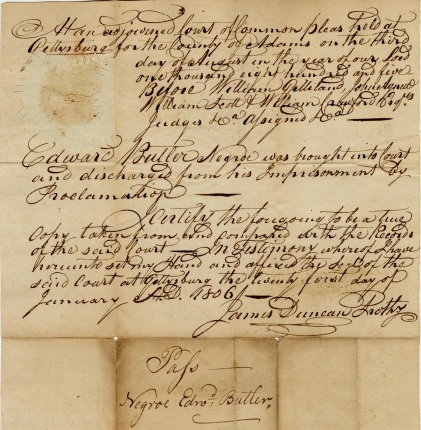 At an adjourned Court of Common Pleas held at
Gettysburg for the County of Adams on the third
day of August in the year of our Lord
one thousand eight hundred and five
Before William Gilliland, John Agnew
William Scott & William Crawford Esqrs
Judges &ca assigned &ca
Edward Butler Negroe was brought into Court
and discharged from his Imprisonment by
Proclamation
I certify the foregoing to be a true
Copy taken from and compared with the Records
of the said Court In Testimony whereof I have
hereunto set my Hand and affixed the Seal of the
said Court at Gettysburg the twenty first day of
January A.D. 1806
James Duncan Prothy
Pass
Negroe Edwd. Butler